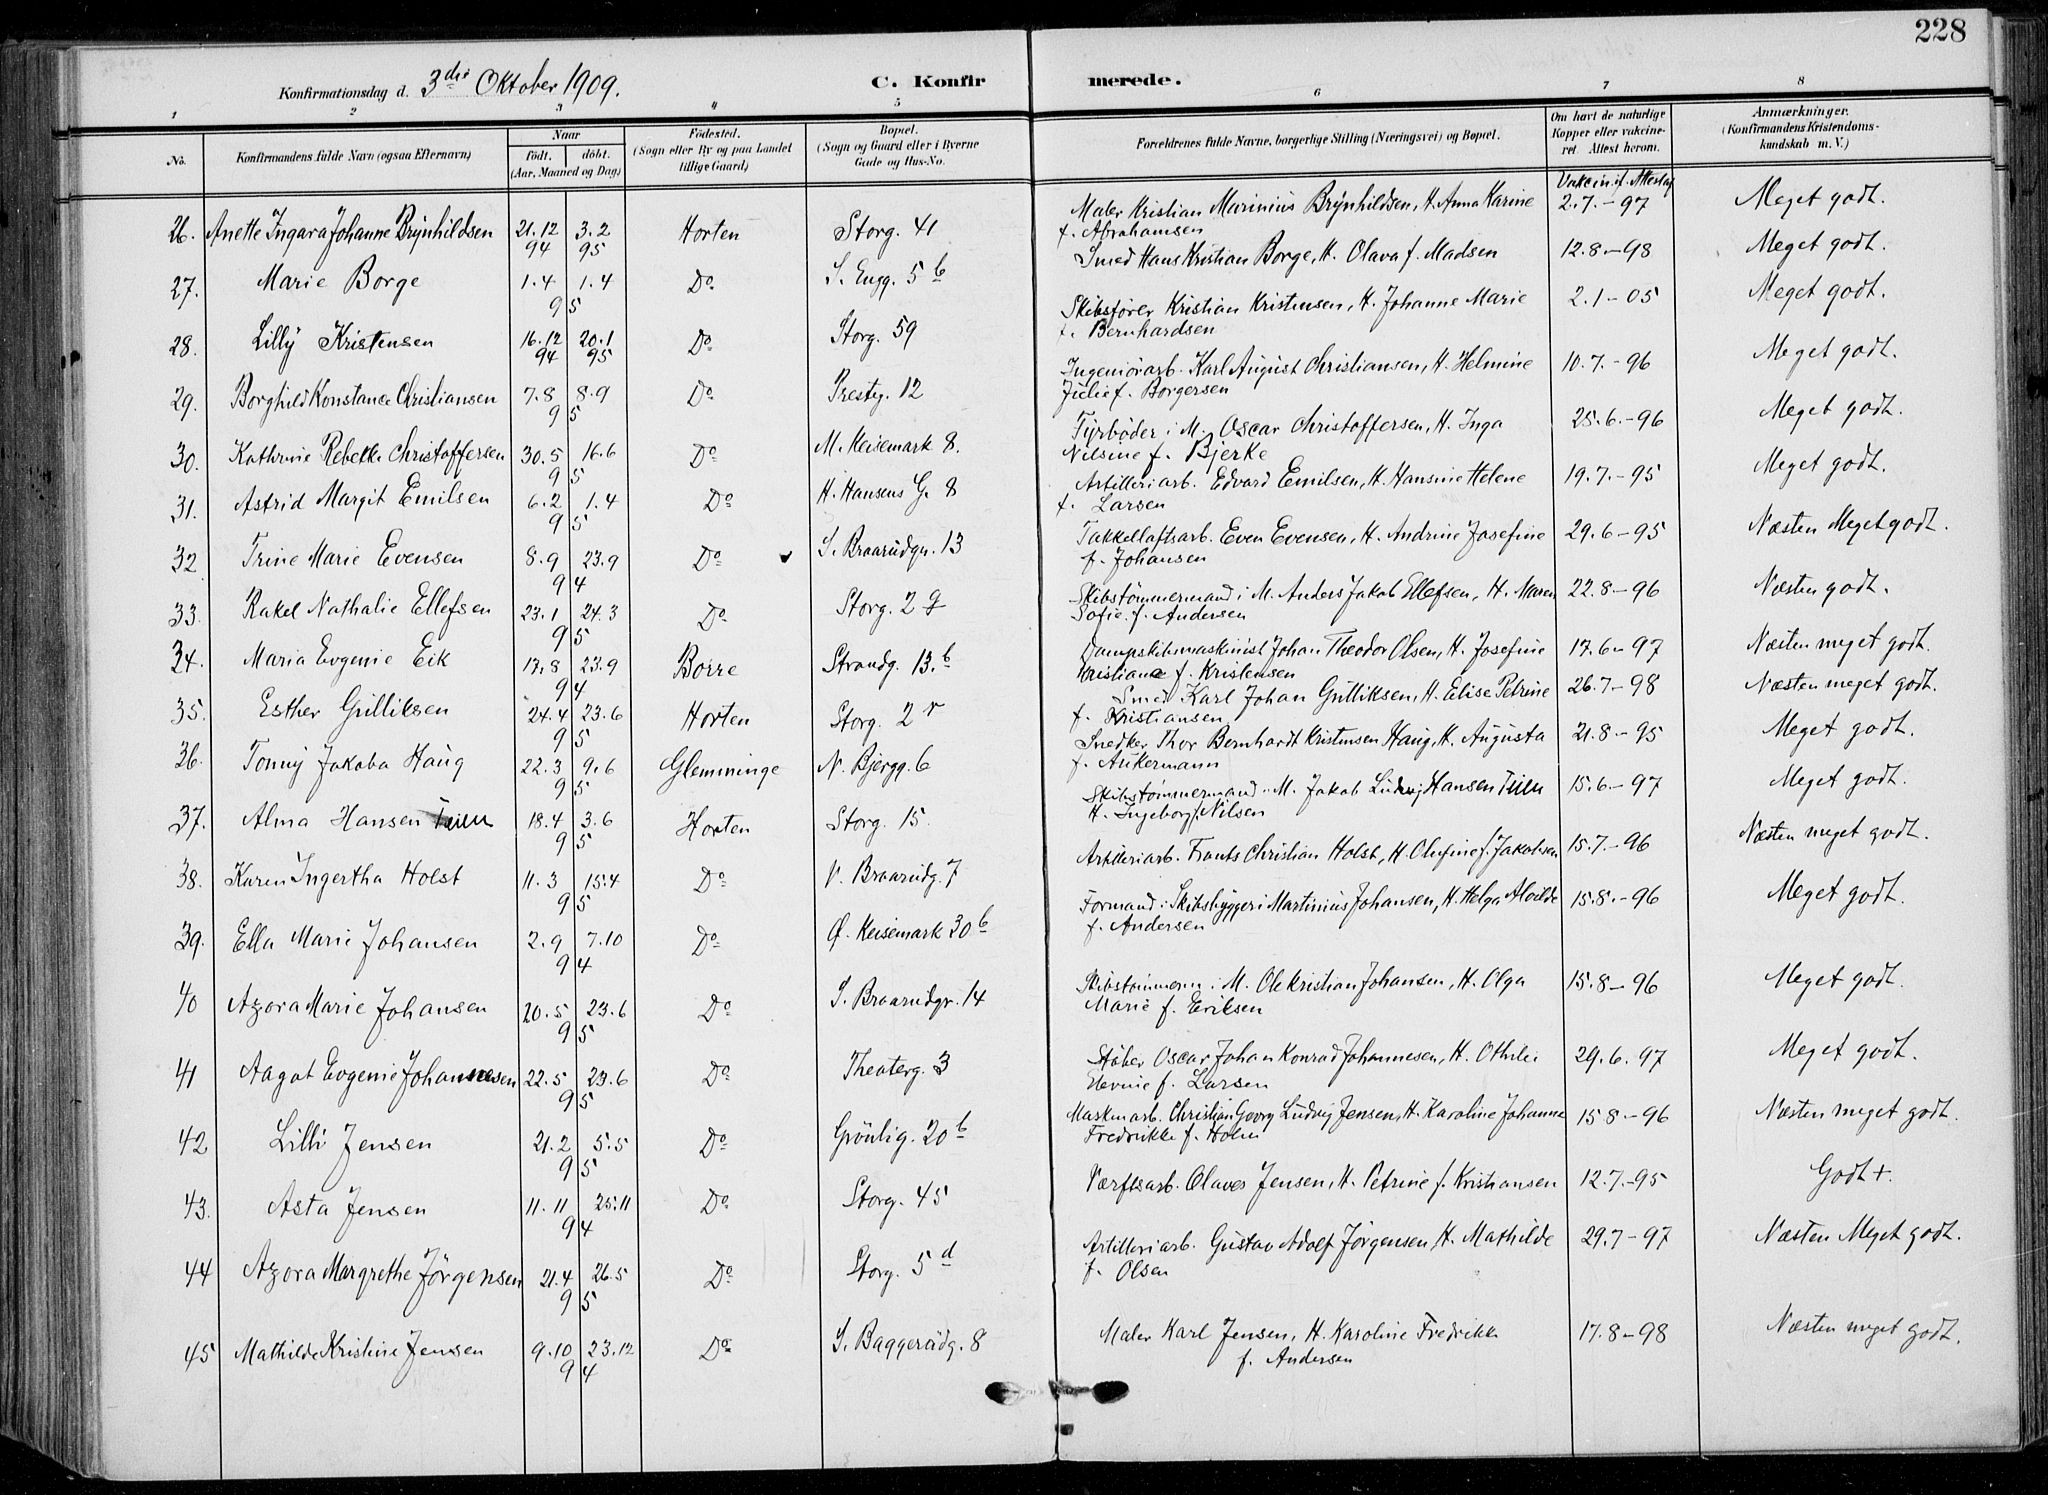 228
Konfirmationsdag d. 3die Oktober 1909.
C. Konfirmerede.
1 2 3 4 5 6 7 8
No. Konfirmandens fulde Navn (ogsaa Efternavn) Naar født. døbt. (Aar, Maaned og Dag) Födested. (Sogn eller By og paa Landet tillige Gaard) Bopæl. (Sogn og Gaard eller i Byerne Gade og Hus-No. Forældrenes fulde Navne, borgerlige Stilling (Næringsvei) og Bopæl. Om havt de naturlige Kopper eller vakcineret. Attest herom. Anmærkninger. (Konfirmandens Kristendomskundskab m. V.)
Vakcin. f. Attestaf
26. Anette Ingara Johanne Brynhildsen 21.12 94 3.2 95 Horten Storg. 41 Maler Kristian Marinius Brynhildsen, H. Anna Karine f. Abrahamsen 2.7.-97 Meget godt.
27. Marie Borge 1.4 1.4 95 Do Enlg. 5 b Smed Hans Kristian Borge, H. Olava f. Madsen 12.8-98 Meget godt.
28. Lilly Kristensen 16.12 94 20.1 95 Do Storg. 59 Skibsfører Kristian Kristensen, H. Johanne Marie f. Bernhardsen 2.1-05 Meget godt.
29. Borghild Konstance Christiansen 7.8 8.9 95 Do Presteg. 12 Ingeniörarb. Karl August Christiansen, H. Helmine Julie f. Borgersen 10.7.-96 Meget godt.
30. Kathrine Rebekka Christoffersen 30.5 16.6 95 Do M. Keisemark 8. Fyrbøder i M. Oscar Christoffersen, H. Inga Nilsine f. Bjerke 25.6.-96 Meget godt.
31. Astrid Margit Emilsen 6.2 1.4 95 Do H. Hansens G. 8 Artilleriarb. Edvard Emilsen, H. Hansine Helene f. Larsen 19.7.-95 Meget godt.
32 Trine Marie Evensen 8.9 23.9 94 Do S. Braarudgn. 13 Takkelloftsarb. Even Evensen, H. Andrine Josefine f. Johansen 29.6-95 Næsten Meget godt.
33. Rakel Nathalie Ellefsen 23.1 24.3 95 Do Storg. 2 g Skibstømmermand i M. Anders Jakob Ellefsen, H. Maren Sofie f. Andersen 22.8-96 Næsten godt.
34. Maria Evgenie Eik 17.8 23.9 94 Borre Strandg. 13.b Dampskibsmaskinist Johan Theodor Olsen, H. Josefine Kristiane f. Kristensen 17.6-97 Næsten meget godt.
35. Esther Gulliksen 24.4 23.6 95 Horten Storg. 2 r Smed Karl Johan Gulliksen, H. Elise Petrine f. Kristiansen 26.7-98 Næsten meget godt.
36. Tonny Jakoba Haug 22.3 9.6 95 Glemminge N. Bjergg. 6 Snedker Thor Bernhardt Kristensen Haug, H. Augusta f. Ankermann 21.8-95 Meget godt.
37. Alma Hansen Teien 18.4 3.6 95 Horten Storg. 15. Skibstømmermand i M. Jakob Ludvig Hansen Teien H. Ingeborg f. Nilsen 15.6-97 Meget godt.
38. Karen Ingertha Holst 11.3 15.4 95 Do V. Braarudg. 7 Artilleriarb. Frants Christian Holst, H. Olufine f. Jakobsen 15.7.-96 Næsten meget godt.
39. Ella Marie Johansen 2.9 7.10 94 Do Ø. Keisemark 30 b Formand i Skibsbyggeri Martinius Johansen, H. Helga Alvilde f. Andersen 15.8.-96 Meget godt.
40 Azora Marie Johansen 20.5 23.6 95 Do S. Braarudgr. 14 Skibstömmerm. i M. Ole Kristian Johansen, H. Olga Marie f. Eriksen 15.8-96 Meget godt.
41 Aagot Evgenie Johannesen 22.5 23.6 95 Do Theaterg. 3 Støber Oscar Johan Konrad Johannesen, H. Othilie Elevine f. Larsen 29.6.97 Meget godt.
42 Lilli Jensen 21.2 5.5 95 Do Grönlig. 20 b Maskinarb. Christian Georg Ludvig Jensen, H. Karoline Johanne Fredrikke f. Holm 15.8-96 Næsten meget godt.
43. Asta Jensen 11.11 25.11 94 Do Storg. 45 Værftsarb. Olaves Jensen, H. Petrine f. Kristiansen 12.7.-95 Godt +.
44 Azora Margrethe Jörgensen 21.4 26.5 95 Do Storg. 5 d Artilleriarb. Gustav Adolf Jørgensen, H. Mathilde f. Olsen 29.7-97 Næsten Meget godt.
45 Mathilde Kristine Jensen 9.10 23.12 94 Do S. Baggerødg. 8 Maler Karl Jensen, H. Karoline Fredrikke f. Andersen 17.8-98 Næsten meget godt.